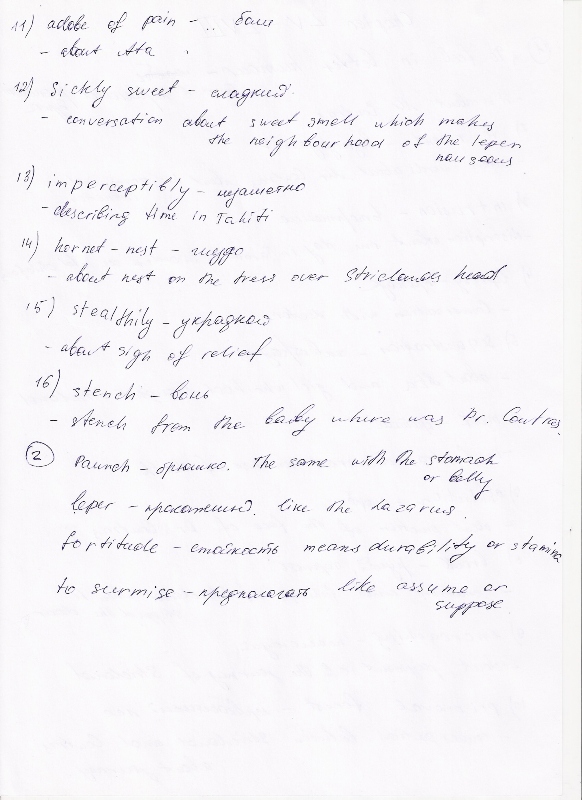 11) adobe of pain - .. боли
- about Ata
12) Sickly sweet - сладкий.
- conversation about sweet smell which makes
the neighbourhood of the leper
nauseous
13) imperceptibly - незаметно
- describing time in Tahiti
14) hornet-nest - гнездо
- about nest on the tress over Striclands head
15) stealthily - украдкой
- about sign of relief
16) stench - вонь
- stench from the baby where was Dr. Coutras.
2 Paunch - брюшко. The same with the stomach
or belly
leper - прокаженный. like the Lazarus.
fortitude - стойкость means durability or stamina
to surmise - предпологать like assume or
suppose.